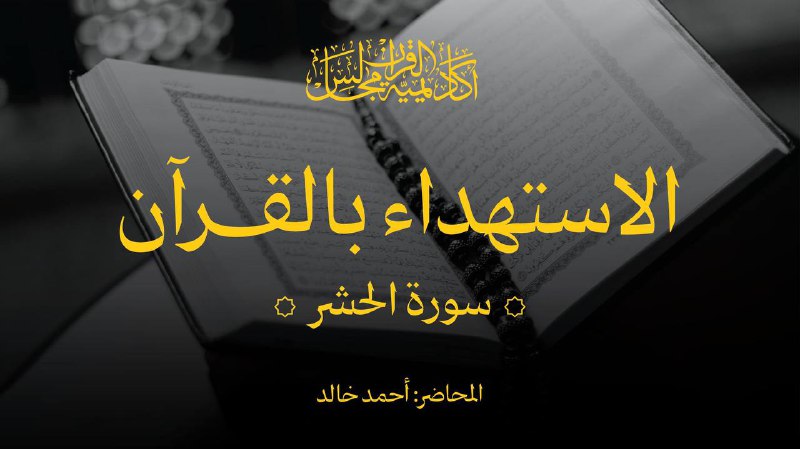 أكاديمية مجالس القرآن
الاستهداء بالقرآن
سورة الحشر
المحاضر: أحمد خالد